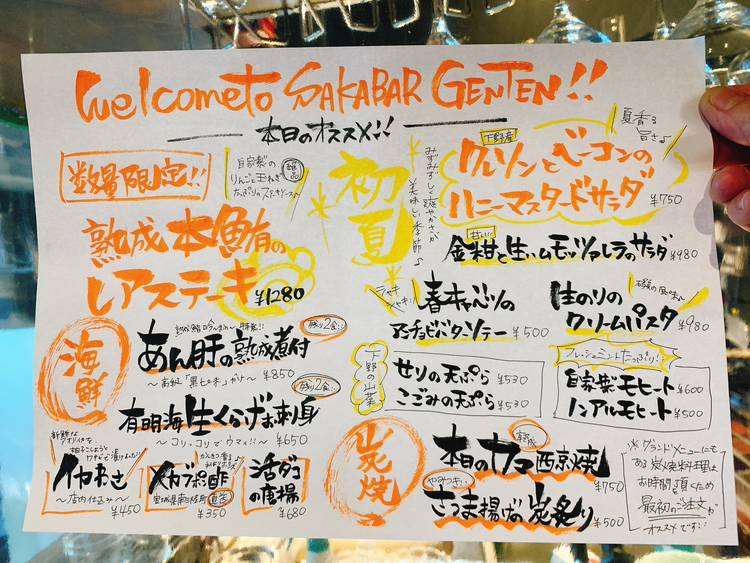 Welcome to SAKABAR GENTEN!!
本日のオススメ!!
数量限定!!
自家製の
りんごと玉ねぎ
たっぷりのステーキソース♪
絶品
熟成本鮪の
レアステーキ
¥1280
初夏
みずみずしく爽やかさが
美味しい季節♪
夏香る
旨さ♪
クレソンとベーコンの
ハニーマスタードサラダ
¥750
甘い!!
金柑と生ハムモッツァレラのサラダ ¥980
シャキ
シャキ!!
春キャベツの
アンチョビバターソテー ¥500
磯の風味♪
生のりの
クリームパスタ ¥980
海鮮
残り2食!!
あん肝の熟成煮付
〜高級「黒七味」かけ〜 ¥850
残り2食!!
有明海 生くらげお刺身
〜コリッコリでウマイ!!〜 ¥650
下野の山菜
セリの天ぷら ¥530
こごみの天ぷら ¥530
フレッシュミントたっぷり!
自家製モヒート ¥600
ノンアルモヒート ¥500
新鮮な
イカわさ
〜店内仕込み〜
¥450
メカブポン酢
直送
¥350
活ダコ
の唐揚
¥680
炭焼
本日のカマ西京焼
¥750
やみつき!!
さつま揚げの炭炙り
¥500
※グランドメニューにも
ある炭焼料理は
お時間を頂くため
最初のご注文が
オススメです!!